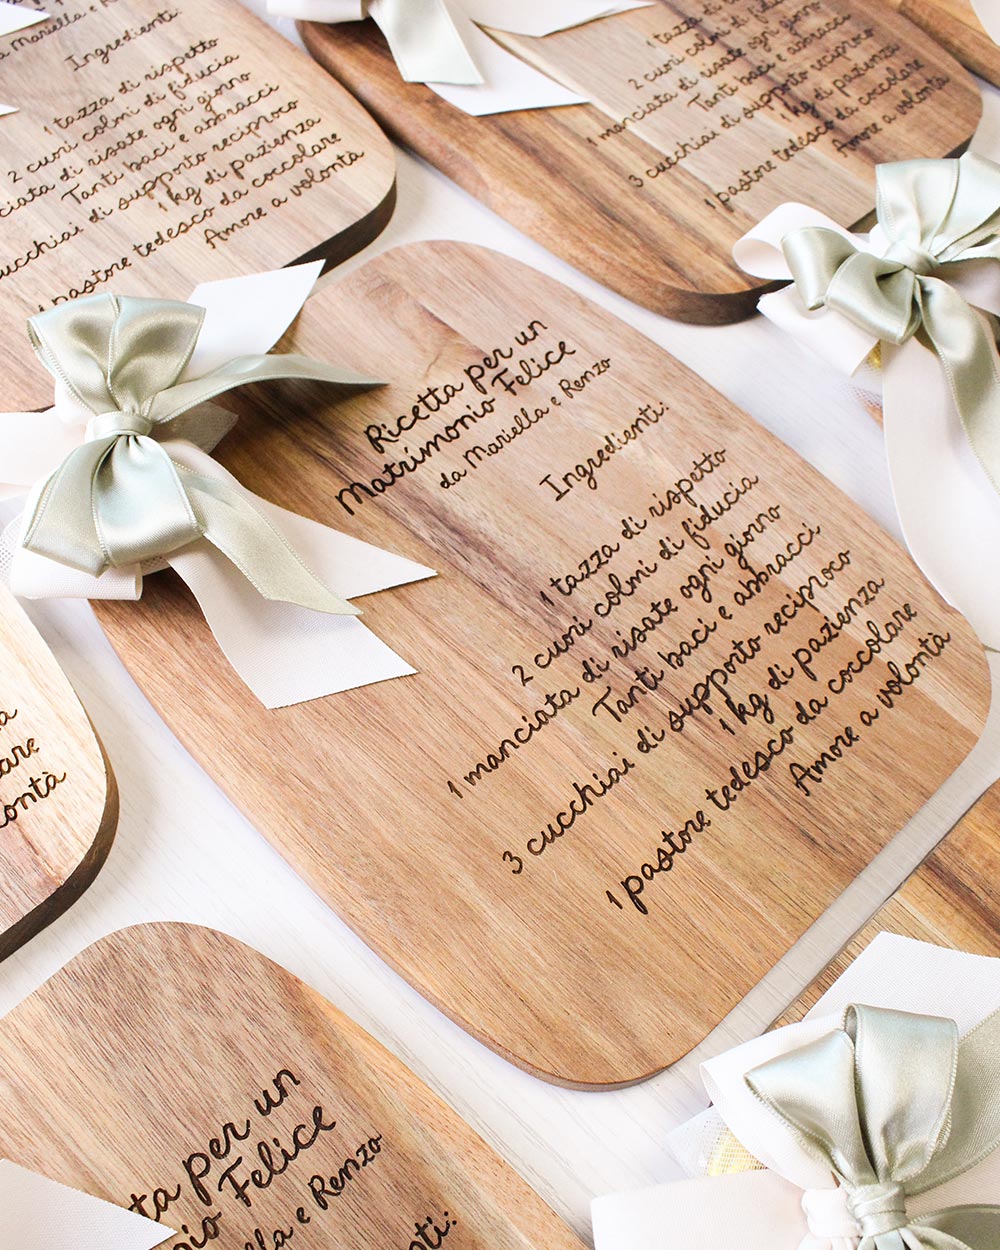 Mariella e Renzo
Ingredienti:
1 tazza di rispetto
2 cuori colmi di fiducia
ciata di risate ogni giorno
Tanti baci e abbracci
cucchiai di supporto reciproco
1 kg di pazienza
1 pastore tedesco da coccolare
Amore a volontà
1 tazza di rispetto
2 cuori colmi di
1 manciata di risate ogni
Tanti baci e abbracci
3 cucchiai di supporto reciproco
1 kg di pazienza
1 pastore tedesco da coccolare
Amore a volontà
Ricetta per un
Matrimonio Felice
da Mariella e Renzo
Ingredienti:
1 tazza di rispetto
2 cuori colmi di fiducia
1 manciata di risate ogni giorno
Tanti baci e abbracci
3 cucchiai di supporto reciproco
1 kg di pazienza
1 pastore tedesco da coccolare
Amore a volontà
a
are
ontà
ta per un
nio Felice
ella e Renzo
nti: